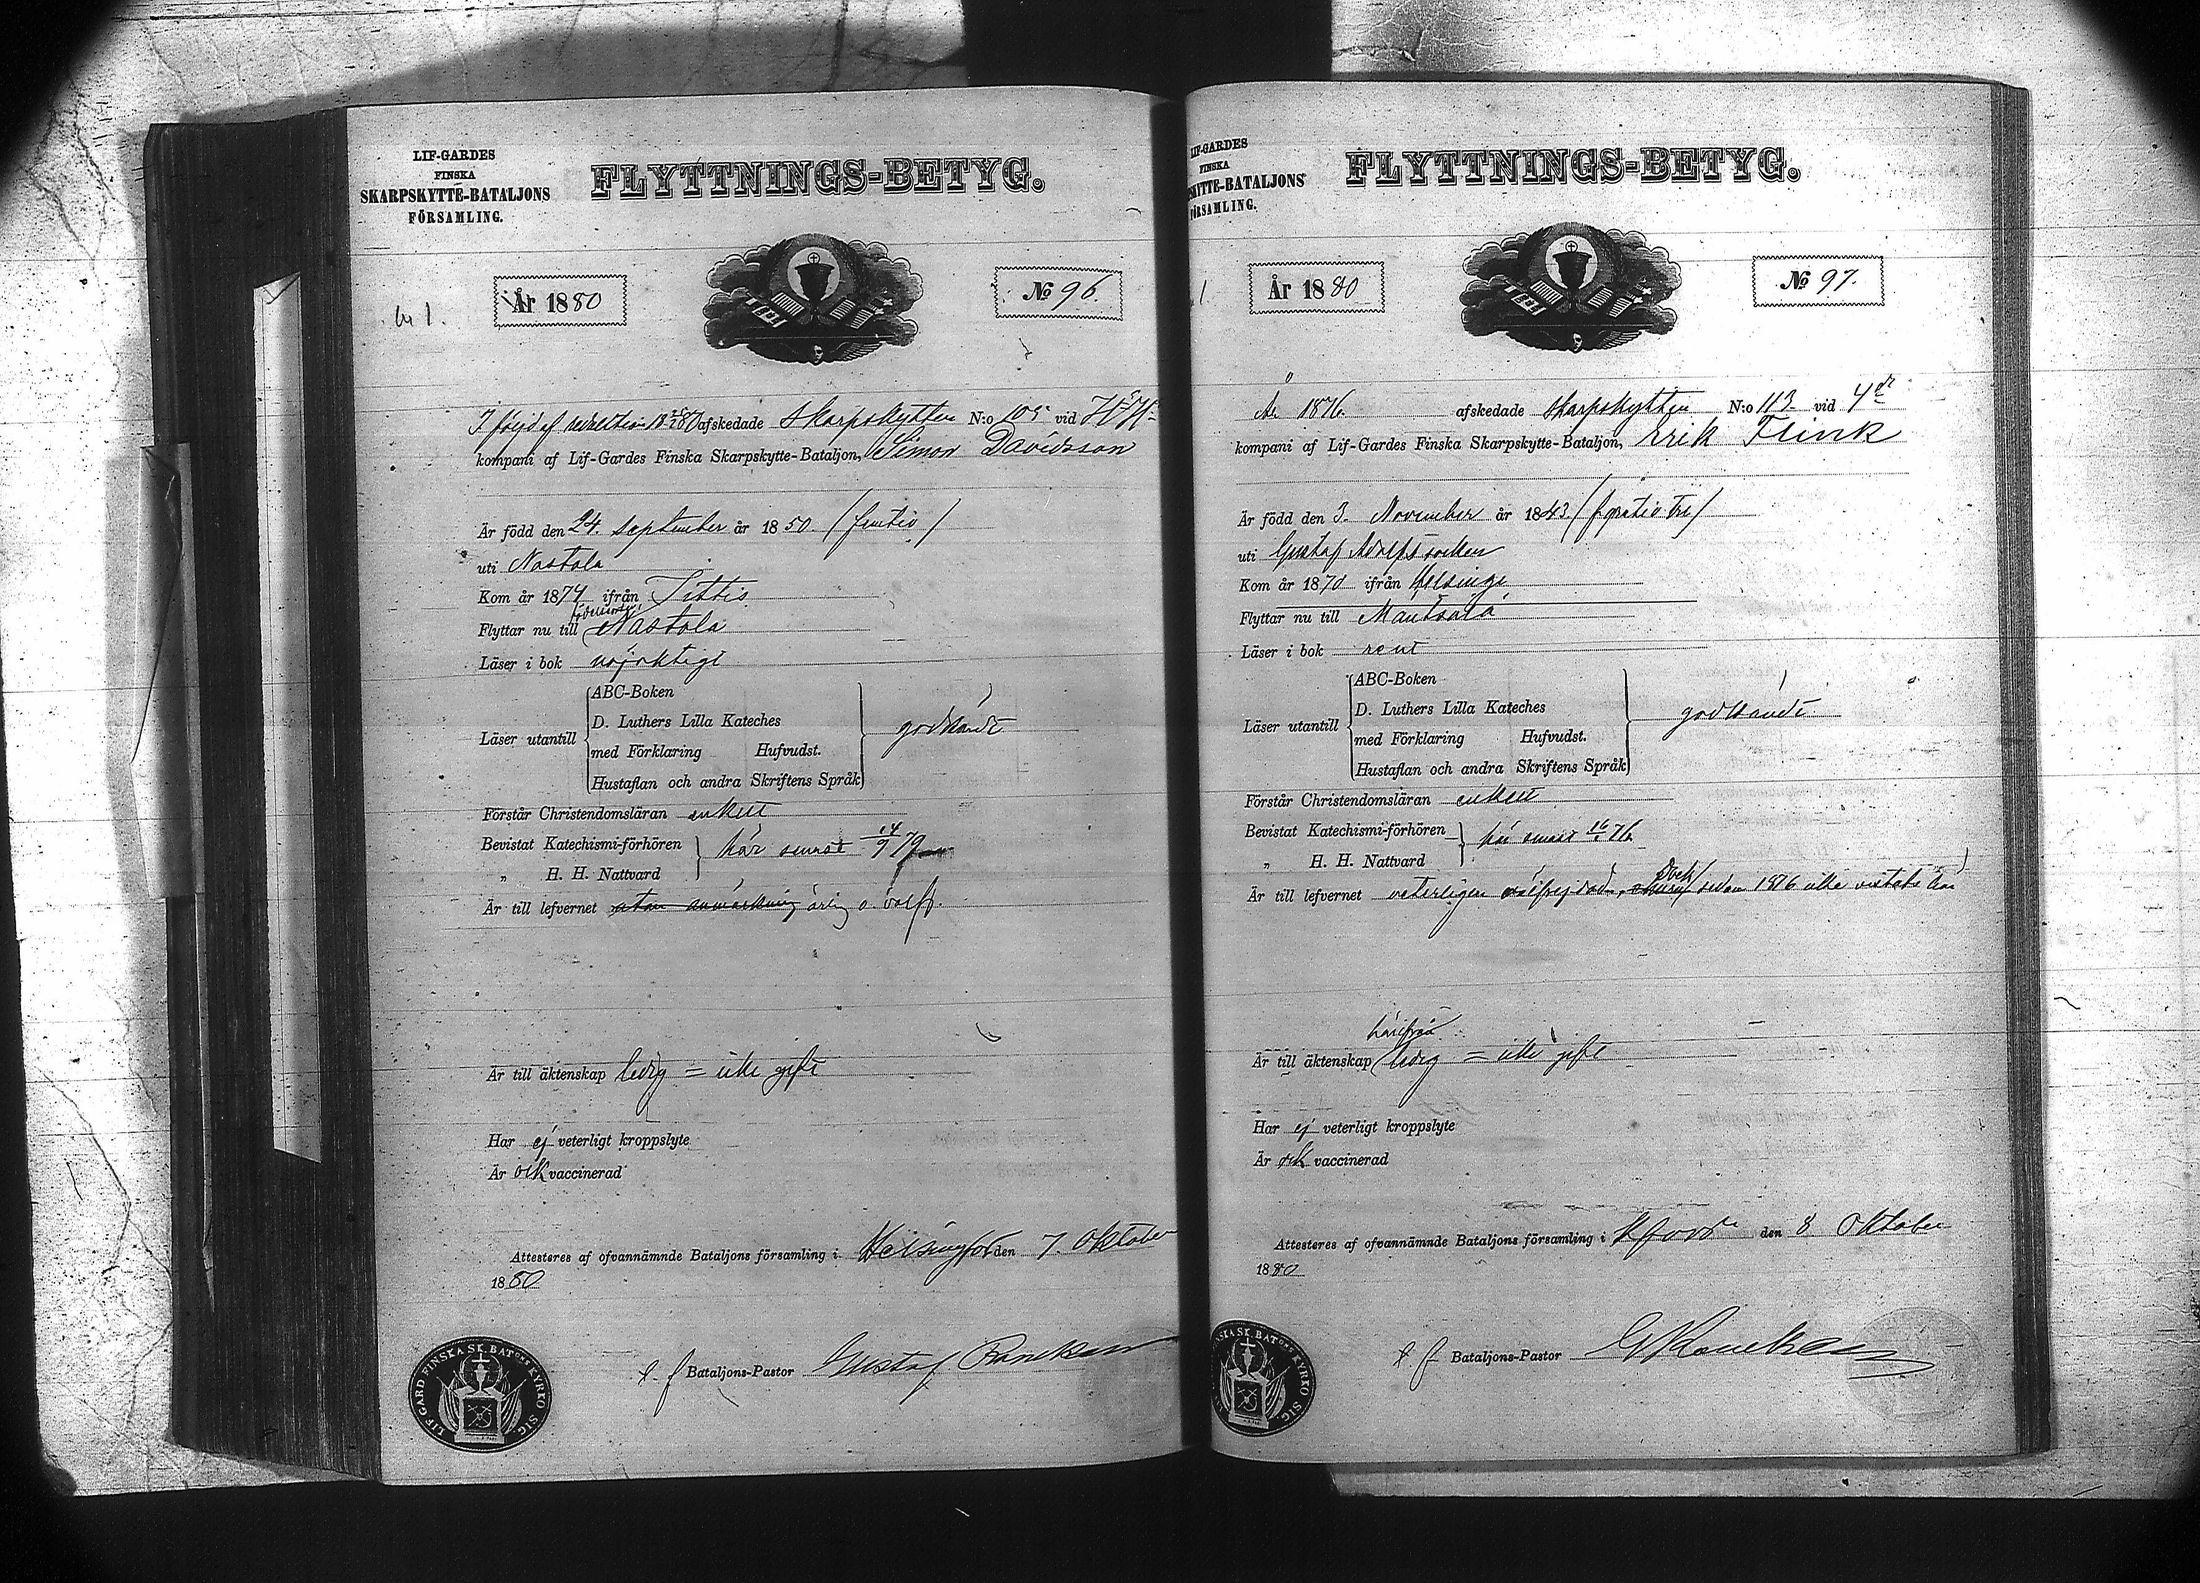 LIF-GARDES
FINSKA
SKARPSKYTTE-BATALJONS
FÖRSAMLING.
FLYTTNINGS-BETYG.
År 1880
№ 96.
I följd af reduktion afskedade Skarpskytten N:o 105 vid
kompani af Lif-Gardes Finska Skarpskytte-Bataljon, Simon Davidsson
Är född den 24. September år 1850. (femtio)
uti Nastola
Kom år 1874 ifrån Iittis
Flyttar nu till Nastola
Läser i bok nöjaktigt
Läser utantill
ABC-Boken
D. Luthers Lilla Kateches
med Förklaring Hufvudst.
Hustaflan och andra Skriftens Språk
godkändt
Förstår Christendomsläran enkelt
Bevistat Katechismi-förhören
„ H. H. Nattvard
här senast 14/9 79
Är till lefvernet utan anmärkning ärlig o. välfr.
Är till äktenskap ledig = icke gift
Har ej veterligt kroppslyte
Är ock vaccinerad
Attesteras af ofvannämnde Bataljons församling i Helsingfors den 7. Oktober
1880
t. f. Bataljons-Pastor Gustaf Ranckén
LIF GARD FINSKA SK. BAT:ONS KYRKO SIG.
LIF-GARDES
FINSKA
SKYTTE-BATALJONS
FÖRSAMLING.
FLYTTNINGS-BETYG.
År 1880
№ 97.
År 1876. afskedade skarpskytten N:o 113 vid 4de
kompani af Lif-Gardes Finska Skarpskytte-Bataljon, Erik Flink
Är född den 3. November år 1843 (fyratio tre)
uti Gustaf Adolfs socken
Kom år 1870 ifrån Helsinge
Flyttar nu till Mäntsälä
Läser i bok rent
Läser utantill
ABC-Boken
D. Luthers Lilla Kateches
med Förklaring Hufvudst.
Hustaflan och andra Skriftens Språk
godkändt
Förstår Christendomsläran enkelt
Bevistat Katechismi-förhören
„ H. H. Nattvard
här senast 76
Är till lefvernet veterligen välfrejdad, dock sedan 1876 icke vistats här
härifrån
Är till äktenskap ledig = icke gift
Har ej veterligt kroppslyte
Är ock vaccinerad
Attesteras af ofvannämnde Bataljons församling i H:fors den 8 Oktober
1880
t. f. Bataljons-Pastor G Ranckén
SKA SK. BAT:ONS KYRKO SIG.